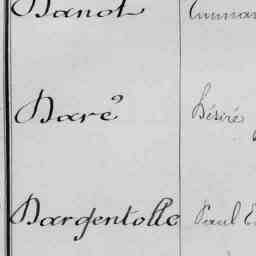 Danot
Daré Désiré
Dargentolle Paul E